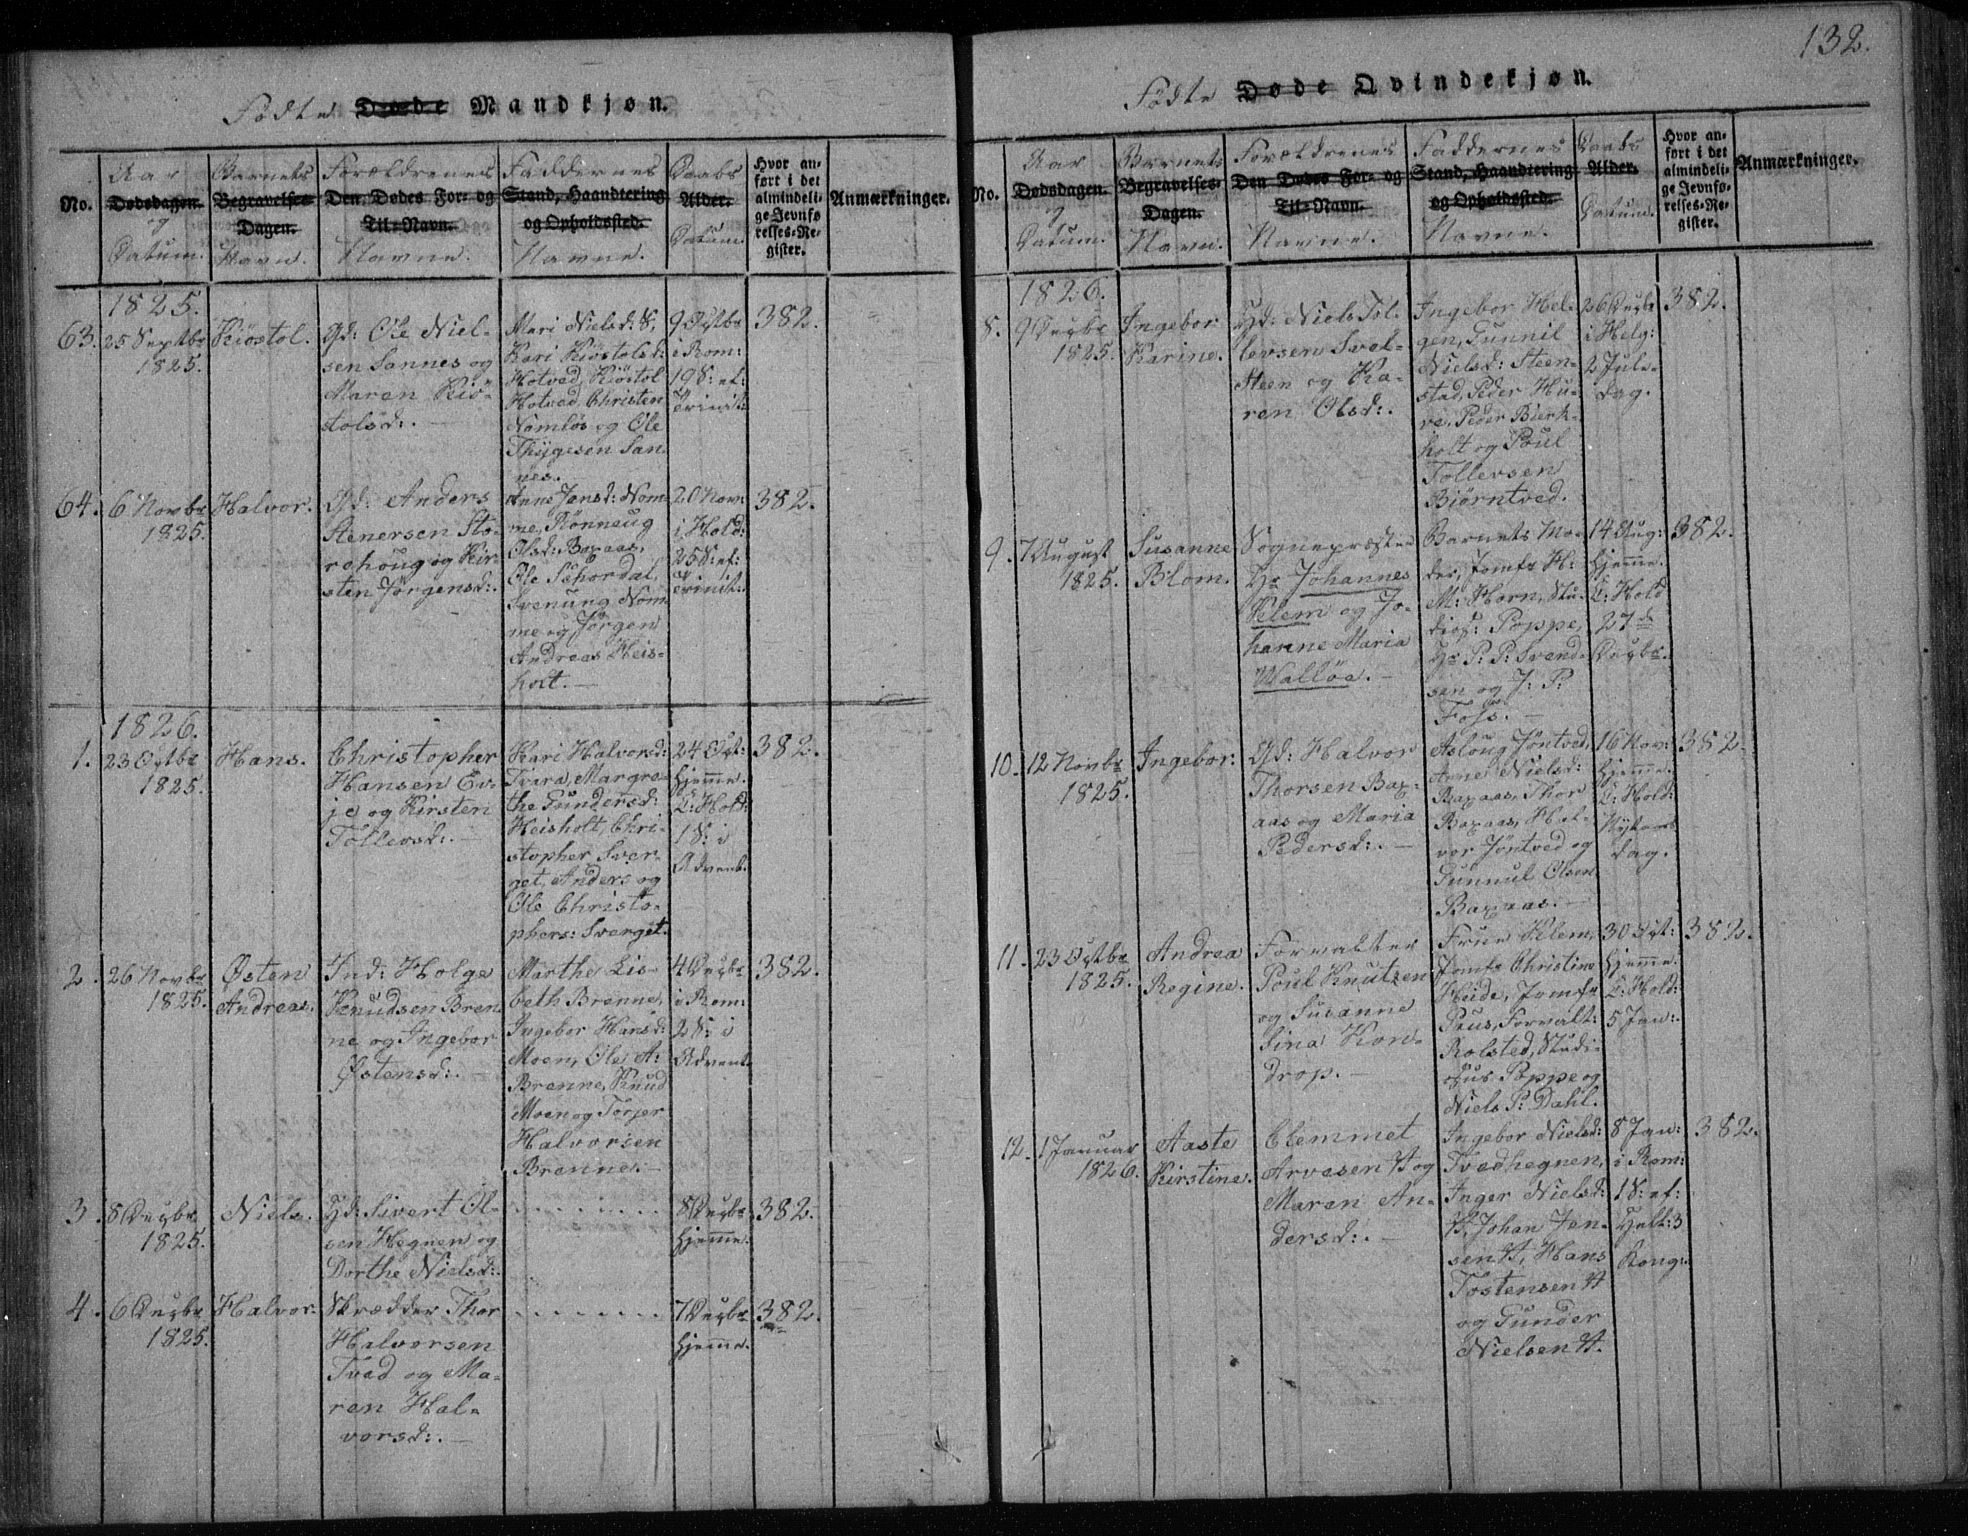 132.
Födte Døde Mandkjøn.
No.
Aar
Dødsdagen.
og
Datum.
Barnets
Begravelses-
Dagen.
Navn.
Forældrenes
Den Dødes For- og
Til-Navn.
Navne.
Faddernes
Stand, Haandtering
og Opholdssted.
Navne.
Daabs
Alder.
Datum.
Hvor an-
ført i det
almindeli-
ge Jevnfø
relses-Re-
gister.
Anmærkninger.
1825.
63.
25 Septbr
1825.
Kiöstol.
Gd: Ole Niel-
sen Sannes og
Maren Kiö-
stolsd:.
Mari Nielsd: S,
Kari Kiöstolsd:
Hotved, Kiöstol
Hotved, Christen
Nomlös og Ole
Thygesen San-
nes.
9 Octbr
i Rom:
19 S: ef:
Trinit:
382.
64.
6 Novbr
1825.
Halvor.
Gd: Anders
Stenersen Sto-
rehoug og Kir-
sten Jörgensd:.
Anne Jensd: Nom-
me, Rönneug
Olsd: Baxaas,
Ole Schordal,
Svenung Nom-
me og Jörgen
Andreas Heis-
holt.
20 Nov:
i Hold:
25 S: ef:
Trinit:.
382.
1826.
1.
23 Octbr
1825.
Hans.
Christopher
Hansen Ev-
je og Kirsten
Tollevsd:.
Kari Halvorsd:
Tvara, Margre-
the Gundersd:
Heisholt, Chri-
stopher Sver-
get, Anders og
Ole Christo-
phers: Sverget.
24 Oct:
hjemme.
I: Hold:
1 S: i
Advent.
382.
2.
26 Novbr
1825.
Østen
Andreas.
Ind: Holge
Knudsen Bren
ne og Ingebor
Østensd:.
Marthe Lis-
beth Brenne,
Ingebor Hansd:
Moen, Ole A:
Brenne, Knud
Moen og Torjer
Halvorsen
Brenne.
4 Decbr
i Rom:
2 S: i
Advent.
382.
3.
8 Decbr
1825.
Niels.
Gd: Sivert Ol-
sen Hegnen og
Dorthe Nielsd:
8 Decbr
hjemme.
382.
4.
6 Decbr
1825.
Halvor.
Skrædder Thor
Halvorsen
Tved og Ma-
ren Hal-
vorsd:.
7 Decbr
hjemme.
382.
Födte Døde Qvindekjøn.
No.
Aar
Dødsdagen.
og
Datum.
Barnets
Begravelses-
Dagen.
Navn.
Forældrenes
Den Dødes For- og
Til-Navn.
Navne.
Faddernes
Stand, Haandtering
og Opholdssted.
Navne.
Daabs
Alder.
Datum.
Hvor an-
ført i det
almindeli-
ge Jevnfø-
relses-Re-
gister.
Anmærkninger.
1826.
8.
9 Decbr
1825.
Ingebor
Karine.
Gd: Niels Tol-
levsen Svel-
steen og Ka-
ren Olsd:.
Ingebor Hel-
gen, Gunnil
Nielsd: Steen-
stad, Peder Hu-
ve, Peder Bierk-
holt og Poul
Tollevsen
Biörntved.
26 Decbr
i Helg:
2 Jule-
dag.
382.
9.
7 August
1825.
Susanne
Blom.
Sognepræsten
Hr Johannes
Kelem og Jo-
hanne Maria
Wallöe.
Barnets Mo-
der, Jomfr H:
M: Horn, Stu-
dios: Poppe,
Hr P: P: Svend-
sen og J: P:
Foss.
14 Aug:
hjemme.
I: Hold
27de
Decbr.
382.
10.
12 Novbr
1825.
Ingebor.
Gd: Halvor
Thorsen Bax-
aas og Maria
Pedersd:.
Asloug Jöntved,
Anne Nielsd:
Baxaas, Thor
Baxaas, Hal-
vor Jöntved og
Gunnul Olsen
Baxaas.
16 Nov:
hjemme.
I: Hold:
Nytaars
dag.
382.
11.
23 Octbr
1825.
Andrea
Regine.
Forvalter
Poul Knutzen
og Susanne
Sina Kon-
drop.
Frue Kelem,
Jomfr Christine
Heide, Jomfr
Prus, Forvalt:
Rolsted, Studi-
osus Poppe og
Niels P: Dahl.
30 Oct:
hjemme.
I: Hold:
5 Jan:.
382.
12.
1 Januar
1826.
Aaste
Kirstine.
Clemmet
Arvesen H og
Maren An-
dersd:.
Ingebor Nielsd:
Tvedhegnen,
Inger Nielsd:
H, Johan Jen-
sen H, Hans
Tostensen H
og Gunder
Nielsen H.
8 Jan:
i Rom:
1 S: ef:
Hell: 3
Kong:.
382.